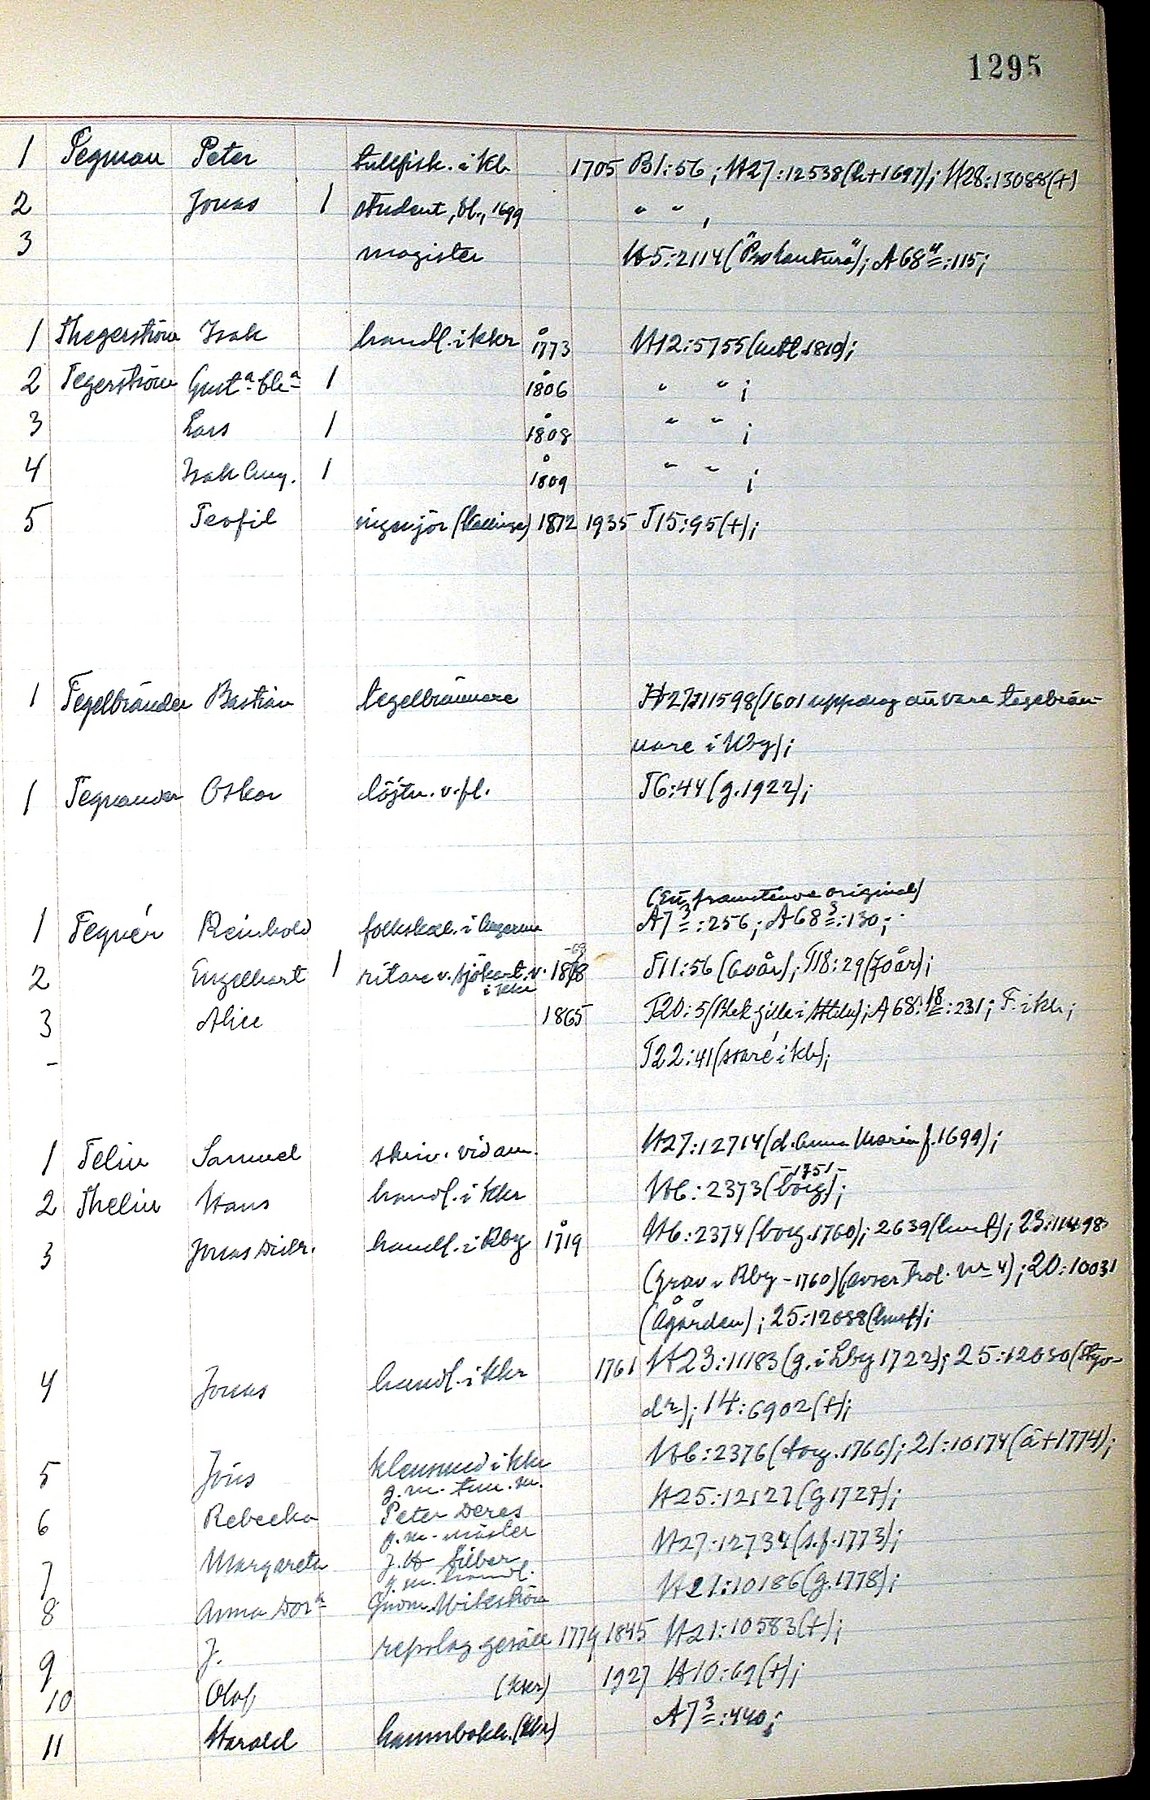 1295
1 Tegman Peter tullfisk. i kk 1705 B1:56; H27:12538(h+1697); H28:13088(+)
2 Jonas 1 student, bl., 1699 " " ,
3 magister H5:2114("Pro Cantura"); A68 4:115;
1 Thegerström Isak handl. i kkr 1773 H12:5755(mtl 1810);
2 Tegerström Gust a Ch a 1 1806 " " ;
3 Lars 1 1808 " " ;
4 Isak Aug. 1 1809 " " ;
5 Teofil ingenjör (Kallinge) 1872 1935 T15:95(+);
1 Tegelbränder Bastian tegelbrännare H27:11598(1601 uppdrag att vara tegelbrän-
nare i Kby);
1 Tegnander Oskar löjtn. v. fl. T6:44(g.1922);
(En framstående original)
1 Tegnér Reinhold folkskol. i A7 3:256; A68 3:130;
2 Engelbart 1 ritare v. sjökart. v. 1868 T11:56(60år); T18:29(70år);
i kkr
3 Alice 1865 T20:5( i ); A68:18:231; F. i kk;
- T22:41( i kk);
1 Telin Samuel skriv. vid am. H27:12714(d. Anna Maria f.1699);
-1751-
2 Thelin Hans handl. i kkr H6:2373(borg);
3 Jonas Didr. handl. i Rby 1719 H6:2374(borg.1760); 2639(hust); 23:11498
(grav i Rby -1760) ( nr 4); 20:10031
(Ågården); 25:12088(hust);
4 Jonas handl. i kkr 1761 H23:11183(g. i Lby 1722); 25:12030(Styv-
dr); 14:6902(+);
5 Jöns klensmed i kkr H6:2376(borg.1766); 21:10174(ä+1774);
6 Rebecka g.m. tun. m. Peter Deres H25:12127(g1727);
7 Margareta g.m. mäster J. H Silber H27:12734(s.f.1773);
8 Anna Dor a g.m. handl. Gudm. Wikström H21:10186(g.1778);
9 J. repslag. gesäll 1779 1845 H21:10583(+);
10 Olof (kkr) 1927 A10:69(+);
11 Harald kamrbokh. (kkr) A7 3:440;